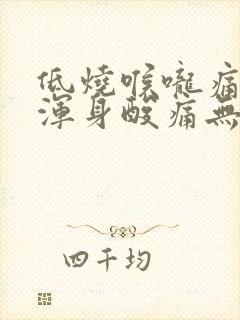 低燒喉嚨痛
渾身酸痛無
四千均